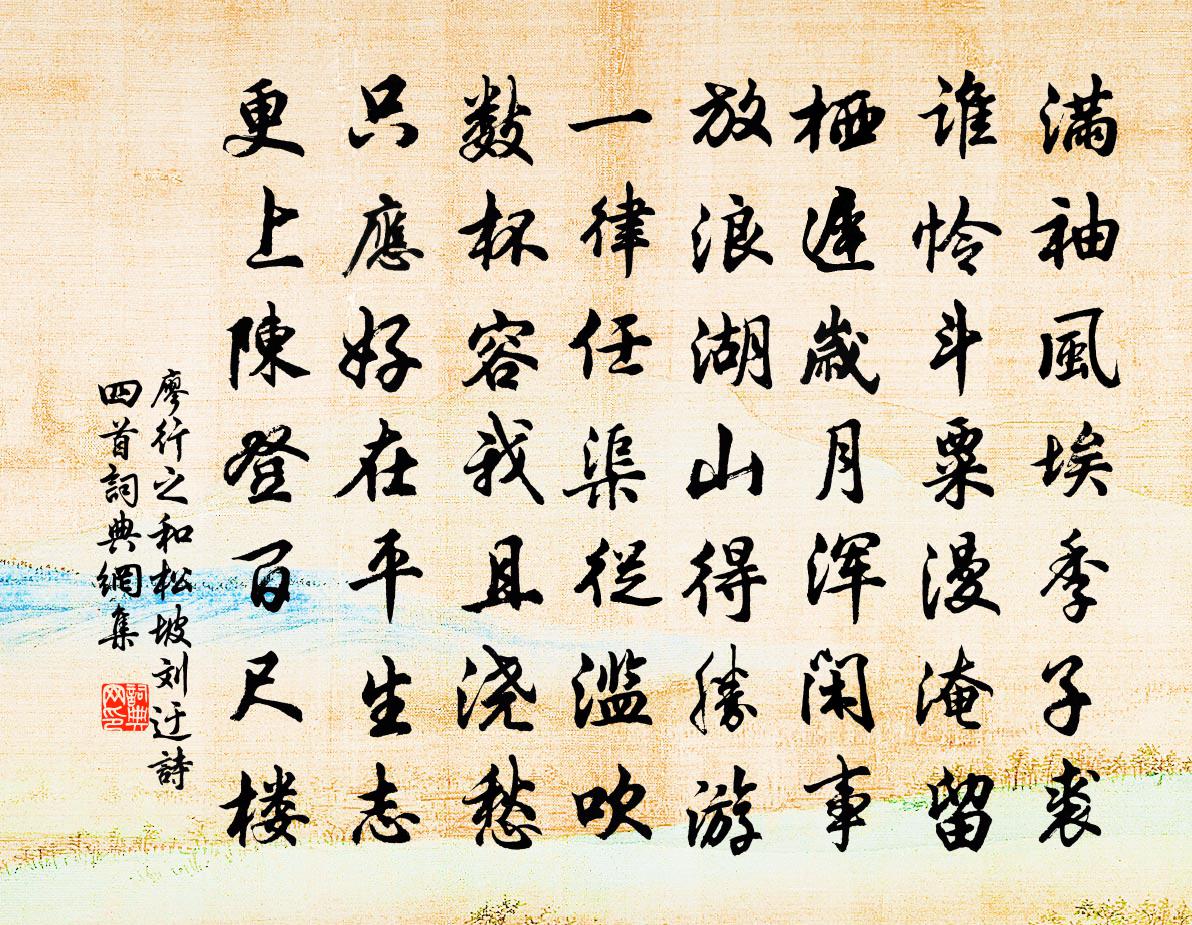 满袖風埃季子裘
谁怜斗粟漫淹留
栖遲歲月浑闲事
放浪湖山得勝游
一律任渠從滥吹
数杯容我且浇愁
只應好在平生志
更上陳登百尺楼
廖行之和松坡刘迂詩
四首詞典網集
詞典
网印